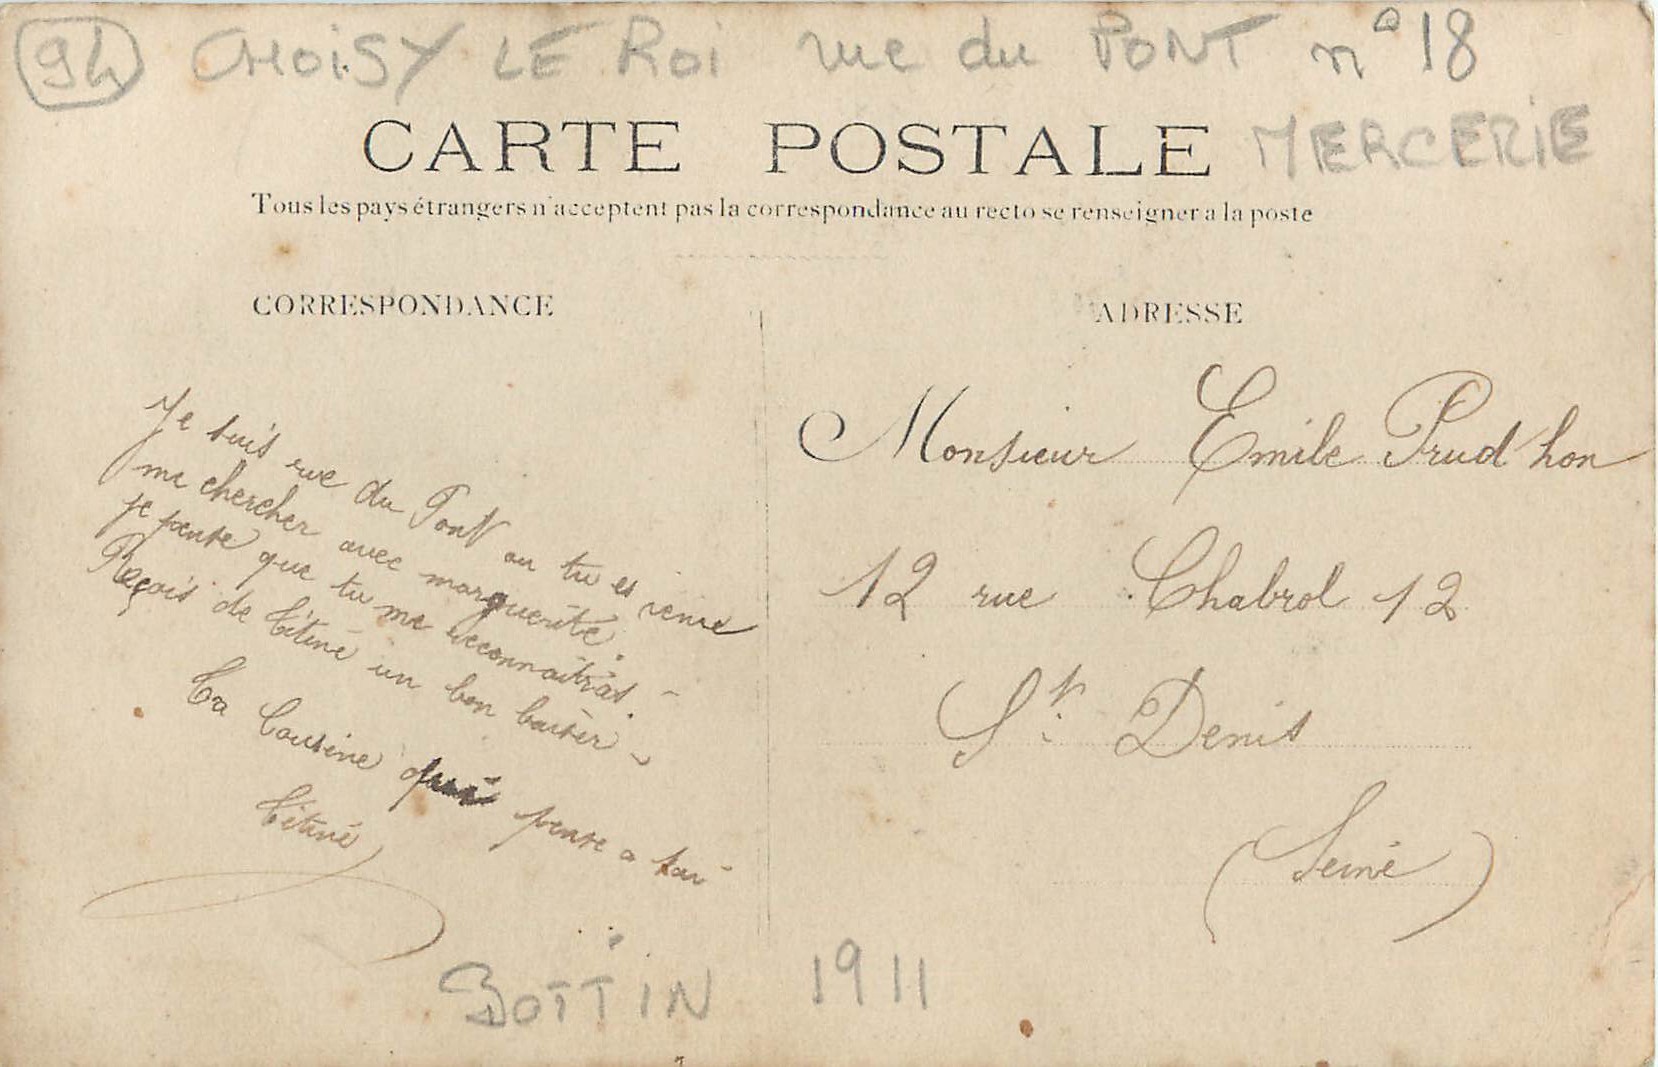 94 CHOISY LE ROI rue du PONT n° 18
MERCERIE
CARTE POSTALE
Tous les pays étrangers n'acceptent pas la correspondance au recto se renseigner a la poste
CORRESPONDANCE
Je suis rue du Pont ou tu es venu
me chercher avec marguerite.
je pense que tu me reconnaitras.
Reçois de Titine un bon baiser
Ta Cousine qui pense a toi
Titine
ADRESSE
Monsieur Emile Prud'hon
12 rue Chabrol 12
St. Denis
(Seine)
BOTTIN 1911